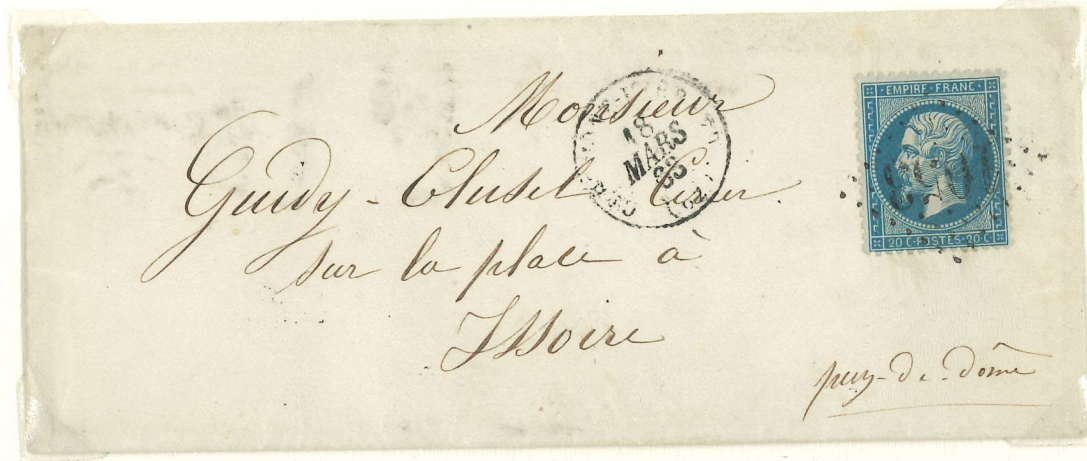 Monsieur
Guidy-Clusel Cirier.
sur la place à
Issoire
puy-de-dôme
18
MARS
63
(62)
EMPIRE FRANC
20 C·POSTES·20 C